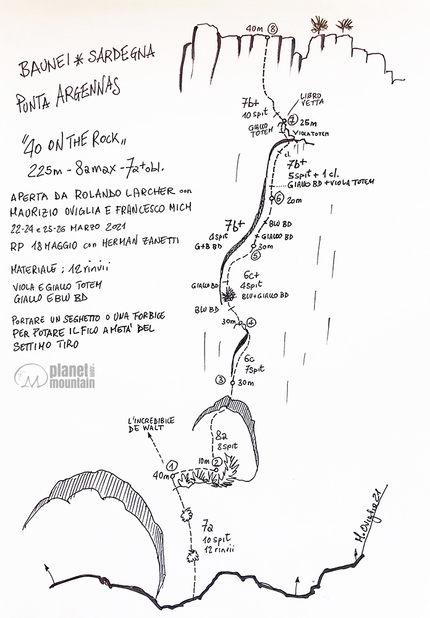 BAUNEI * SARDEGNA
PUNTA ARGENNAS
"40 ON THE ROCK"
225m - 8a max - 7a+ obl.
APERTA DA ROLANDO LARCHER con
MAURIZIO OVIGLIA E FRANCESCO MICH
22-24 e 25-26 MARZO 2021
RP 18 MAGGIO con HERMAN ZANETTI
MATERIALE : 12 rinvii
VIOLA E GIALLO TOTEM
GIALLO E BLU BD
PORTARE UN SEGHETTO O UNA FORBICE
PER POTARE IL FICO A META' DEL
SETTIMO TIRO
planet
mountain
40m 8
7b+
10 spit
LIBRO
VETTA
7 25m
GIALLO
TOTEM
VIOLA TOTEM
cl.
7b+
5 spit + 1 cl.
GIALLO BD + VIOLA TOTEM
6 20m
7b+
4 spit
G+B BD
BLU BD
GIALLO BD
30m
5
6c+
4 spit
GIALLO BD
BLU + GIALLO BD
BLU BD
30m 4
6c
7 spit
3 30m
L'INCREDIBILE
DE WALT
8a
8 spit
1
10m 2
40m
7a
10 spit
12 rinvii
M. Oviglia 21